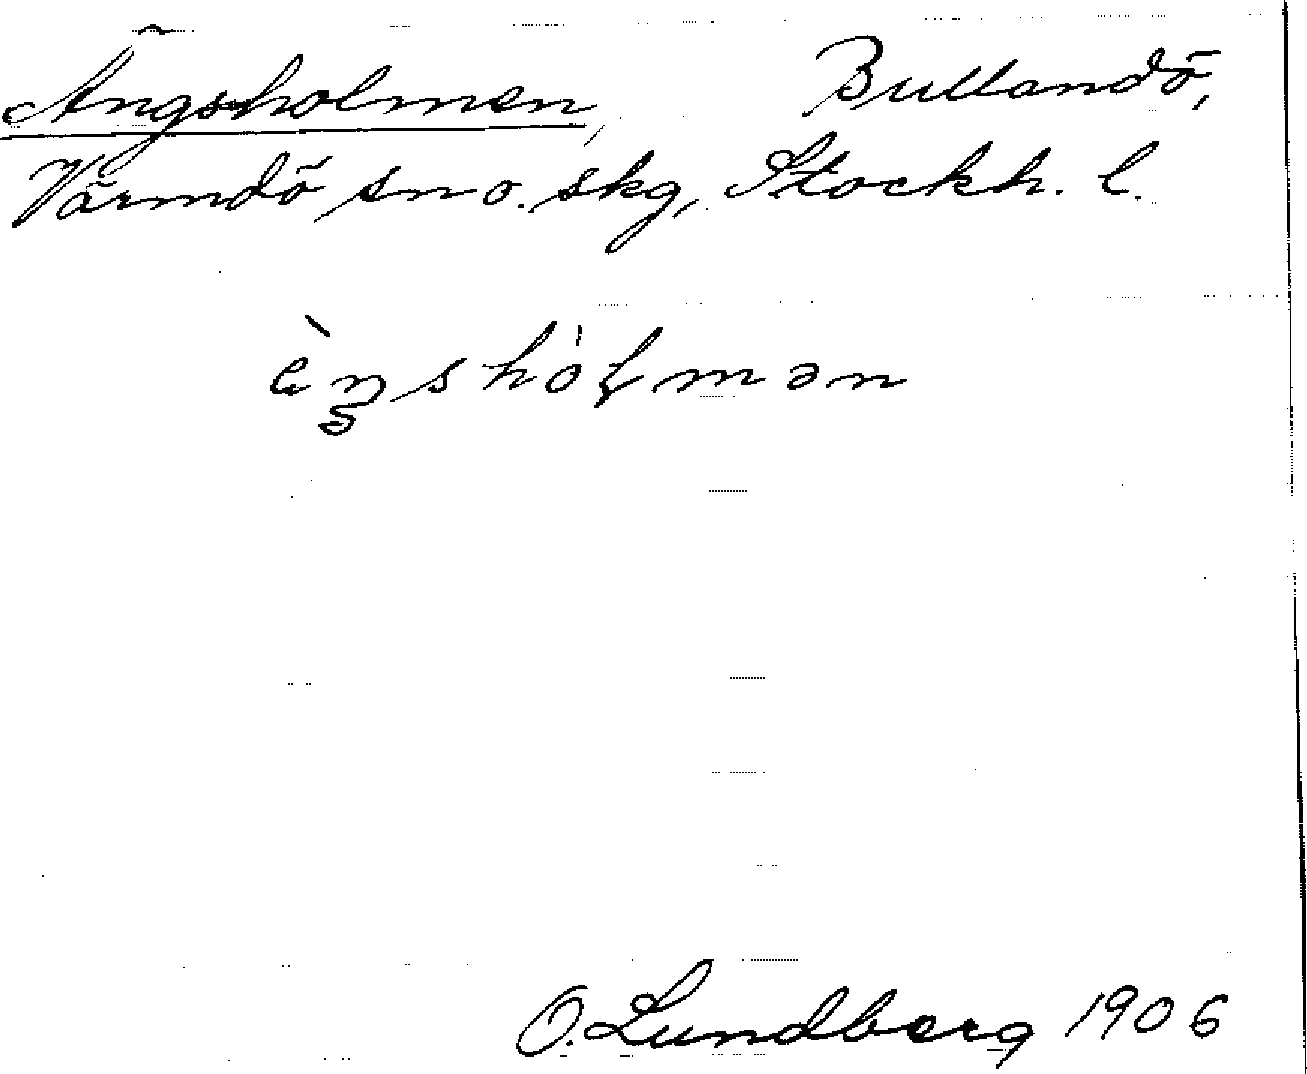 Ängsholmen, Bullandö,
Värmdö sn o. skg, Stockh. l.
èŋshòlmən
O. Lundberg 1906